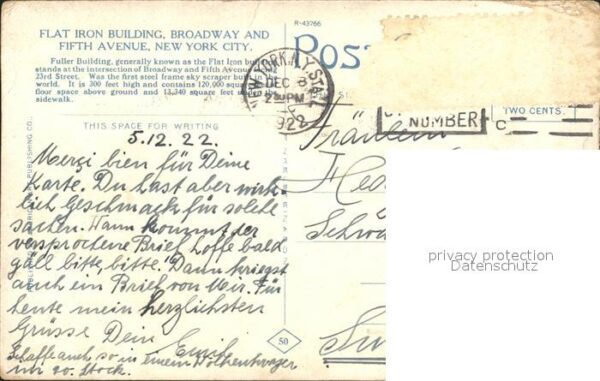 R-43766
FLAT IRON BUILDING, BROADWAY AND
FIFTH AVENUE, NEW YORK CITY.
Fuller Building, generally known as the Flat Iron buil
stands at the intersection of Broadway and Fifth Avenue
23rd Street. Was the first steel frame sky scraper built in
world. It is 300 feet high and contains 120,000 squ
floor space above ground and 13,240 square feet
sidewalk.
POST
NEW YORK, N.Y. STA.
DEC 8
2 PM
1922
NUMBER
TWO CENTS.
THIS SPACE FOR WRITING
5.12.22.
Merçi bien für Deine
Karte. Du hast aber wirk-
lich Geschmack für solche
sachen. Wann kommt der
versprochene Brief, hoffe bald
gäll bitte, bitte. Dann kriegst
auch ein Brief von Mir. Für
heute mein herzlichsten
Grüsse Dein Emil
Schaffe auch so in einem Wolkenkrazer
im 20. Stock.
Fräulein
50
privacy protection
Datenschutz